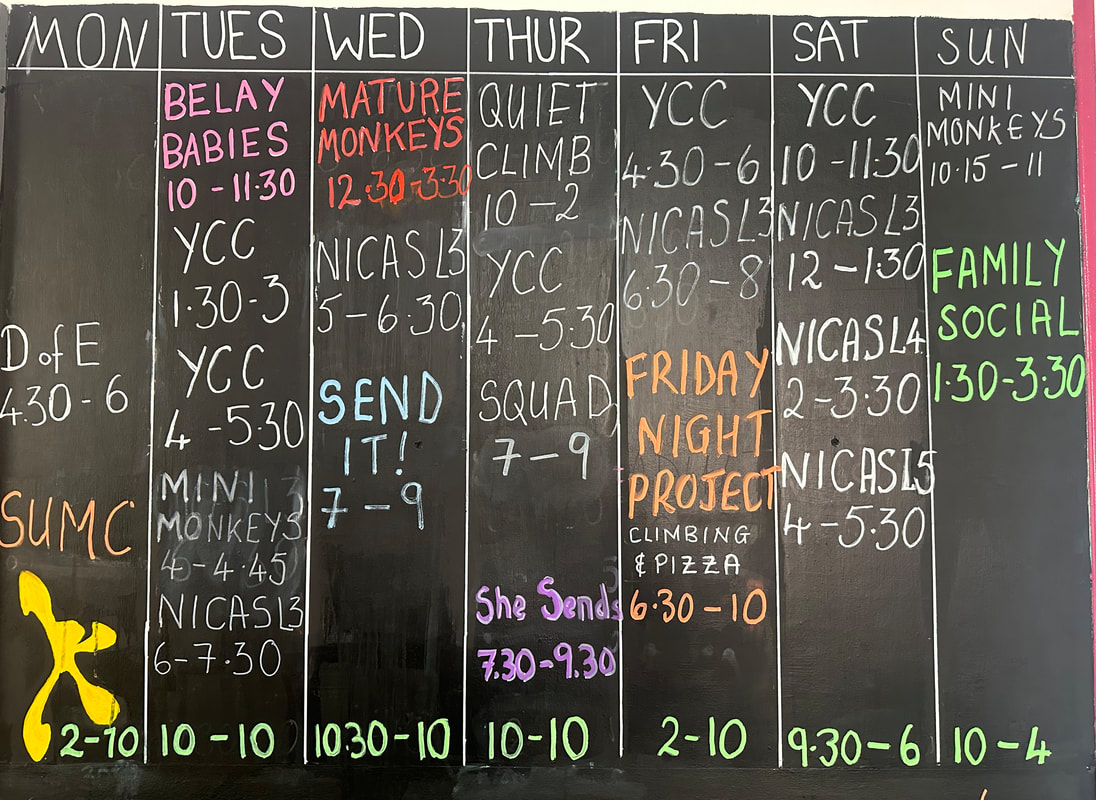 MON
D of E
4.30 - 6
SUMC
2-10
TUES
BELAY
BABIES
10 - 11.30
YCC
1.30-3
YCC
4 - 5.30
MINI
MONKEYS
4 - 4.45
NICAS L3
6 - 7.30
10 - 10
WED
MATURE
MONKEYS
12.30-3.30
NICAS L3
5 - 6.30
SEND
IT!
7 - 9
10.30 - 10
THUR
QUIET
CLIMB
10 - 2
YCC
4 - 5.30
SQUAD
7 - 9
She Sends
7.30-9.30
10-10
FRI
YCC
4.30 - 6
NICAS L3
6.30 - 8
FRIDAY
NIGHT
PROJECT
CLIMBING
& PIZZA
6.30 - 10
2-10
SAT
YCC
10 - 11.30
NICAS L3
12 - 1.30
NICAS L4
2-3.30
NICAS L5
4 - 5.30
9.30 - 6
SUN
MINI
MONKEYS
10.15 - 11
FAMILY
SOCIAL
1.30-3.30
10 - 4